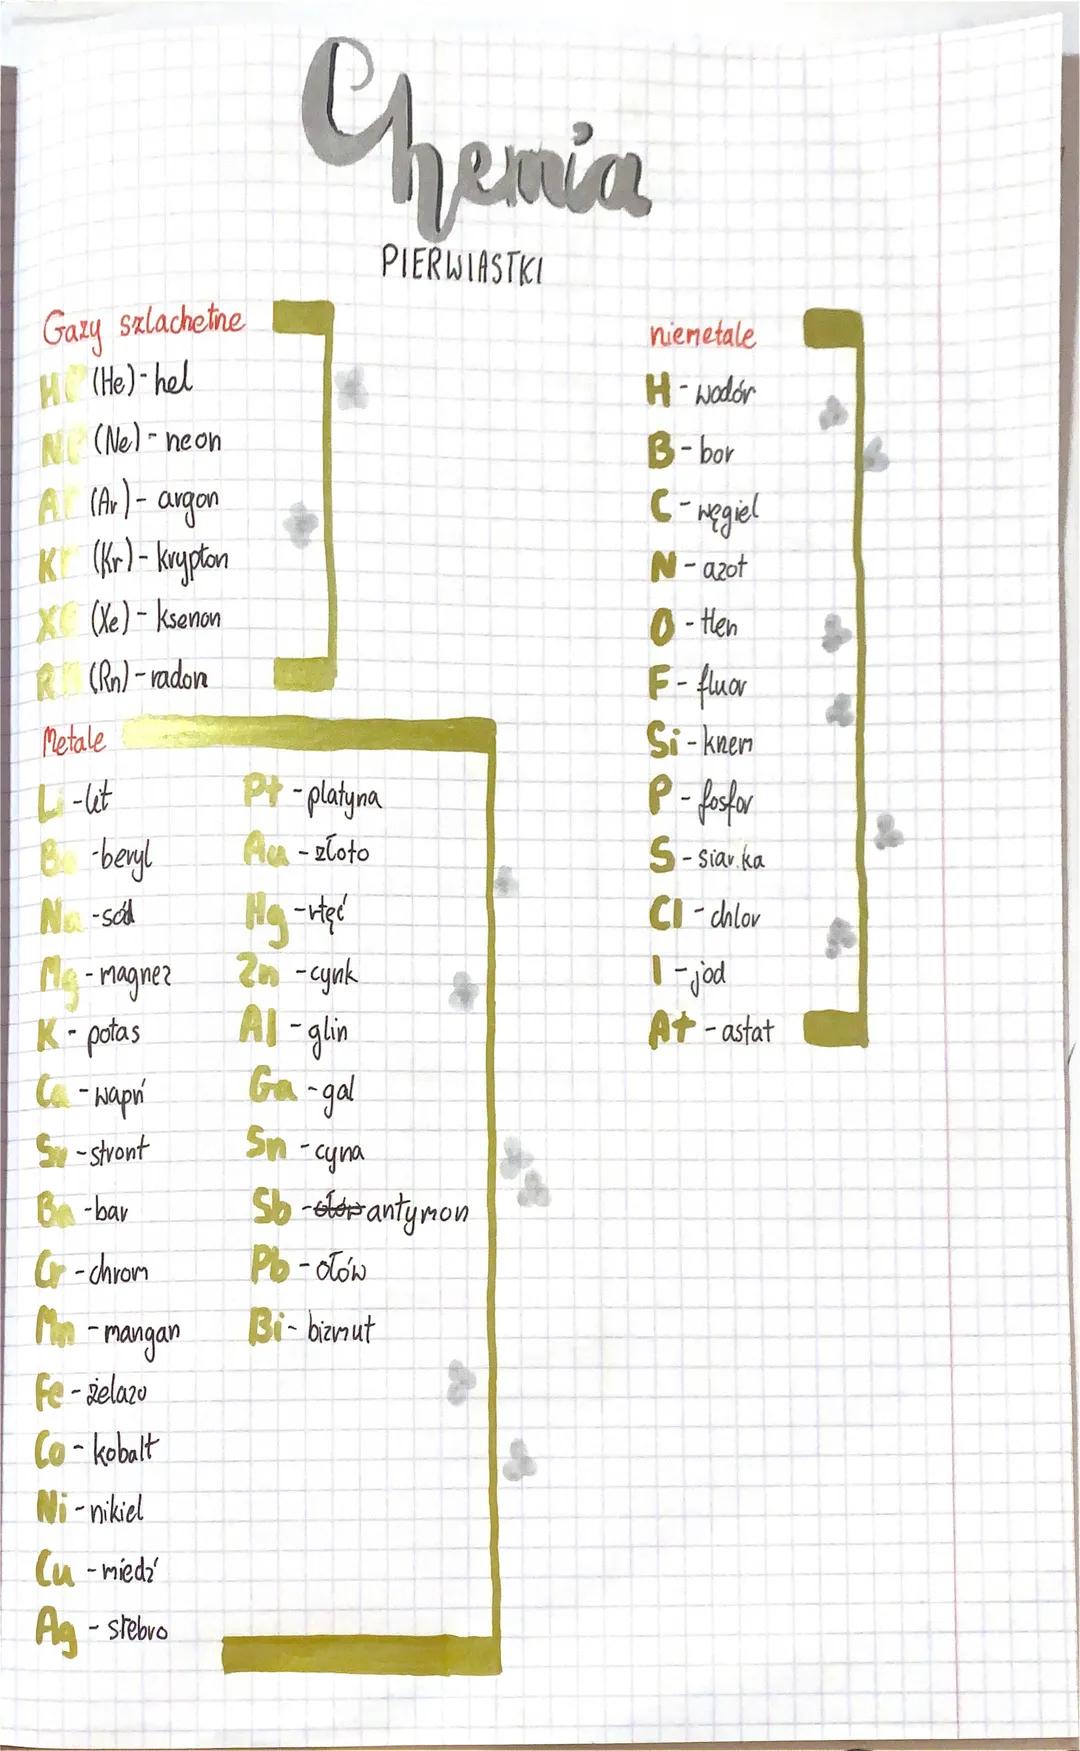 Chemia
PIERWIASTKI
Gazy szlachetne
He (He) - hel
Ne (Ne) - neon
Ar (Ar) - argon
Kr (Kr) - krypton
Xe (Xe) - ksenon
Rn (Rn) - radon
Metale
Li - lit
Be - beryl
Na - sód
Mg - magnez
K - potas
Ca - wapń
Sr - stront
Ba - bar
Cr - chrom
Mn - mangan
Fe - żelazo
Co - kobalt
Ni - nikiel
Cu - miedź
Ag - srebro
Pt - platyna
Au - złoto
Hg - rtęć
Zn - cynk
Al - glin
Ga - gal
Sn - cyna
Sb - ołów antymon
Pb - ołów
Bi - bizmut
niemetale
H - wodór
B - bor
C - węgiel
N - azot
O - tlen
F - fluor
Si - krzem
P - fosfor
S - siarka
Cl - chlor
I - jod
At - astat